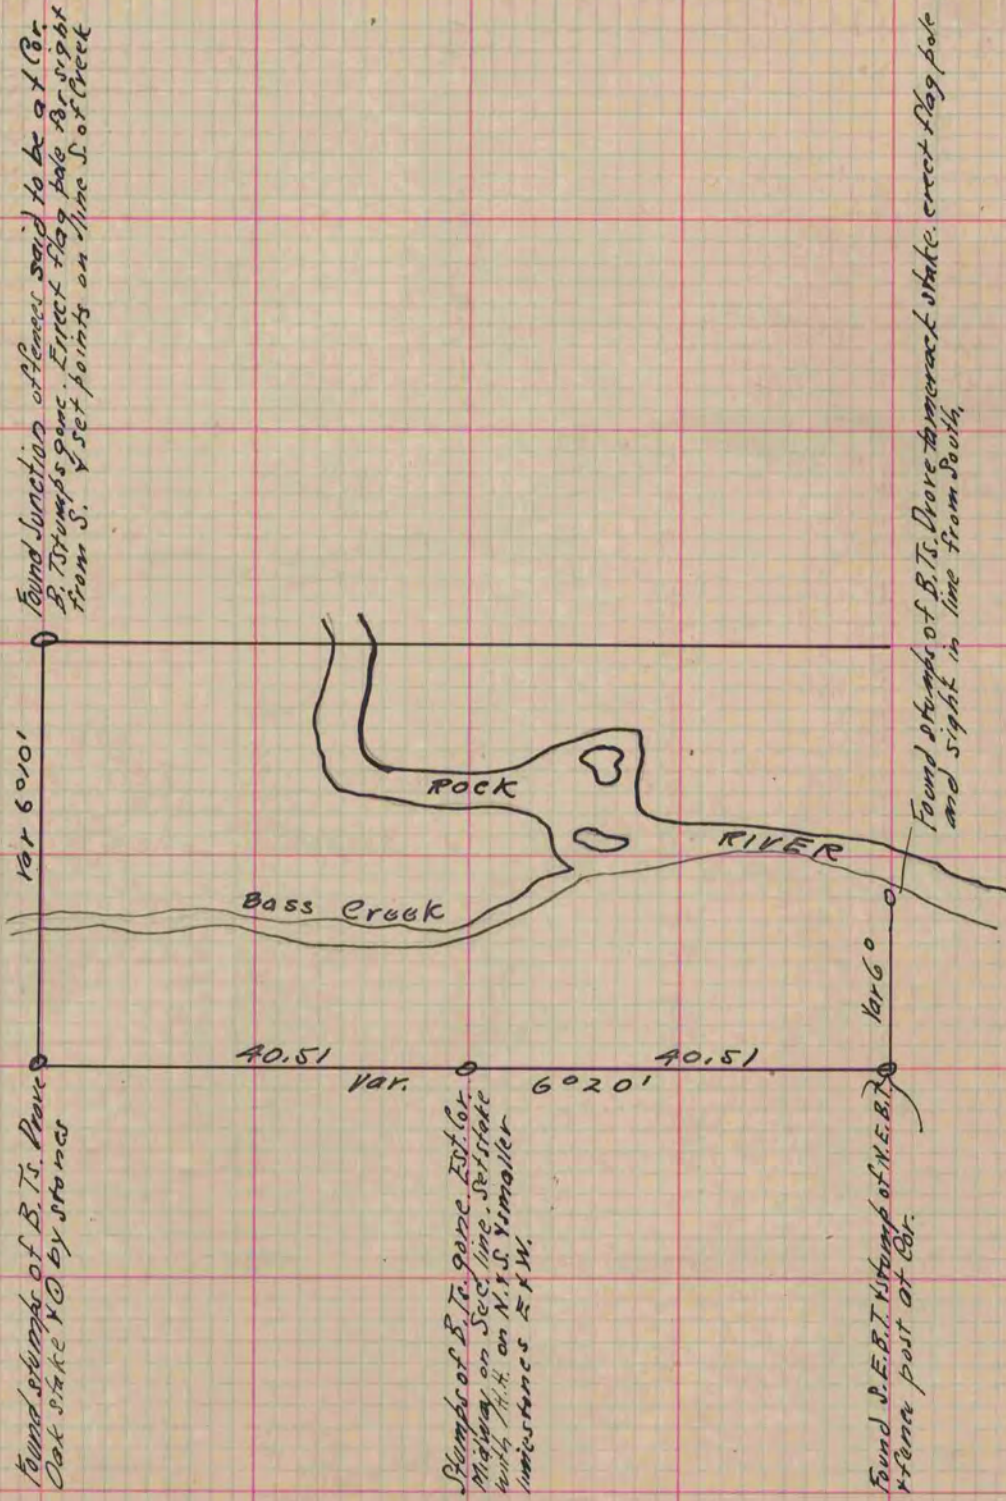 Found Junction of fences said to be at Cor.
B. T Stumps gone. Errect flag pole for sight
from S. & set points on line S. of Creek
Var 6°10'
ROCK
RIVER
Bass Creek
Found stumps of B. Ts. Drove tamerack stake. erect flag pole
and sight in line from South.
Var 6°
40.51
40.51
Var.
6°20'
Found stumps of B. Ts. Drove
Oak Stake & by stones
Stumps of B. Ts. gone. Est. Cor.
Midway on Sec. line. Set stake
with on N. & S. & smaller
limestones E & W.
Found S.E.B.T. & stump of N.E.B.T.
& fence post at Cor.